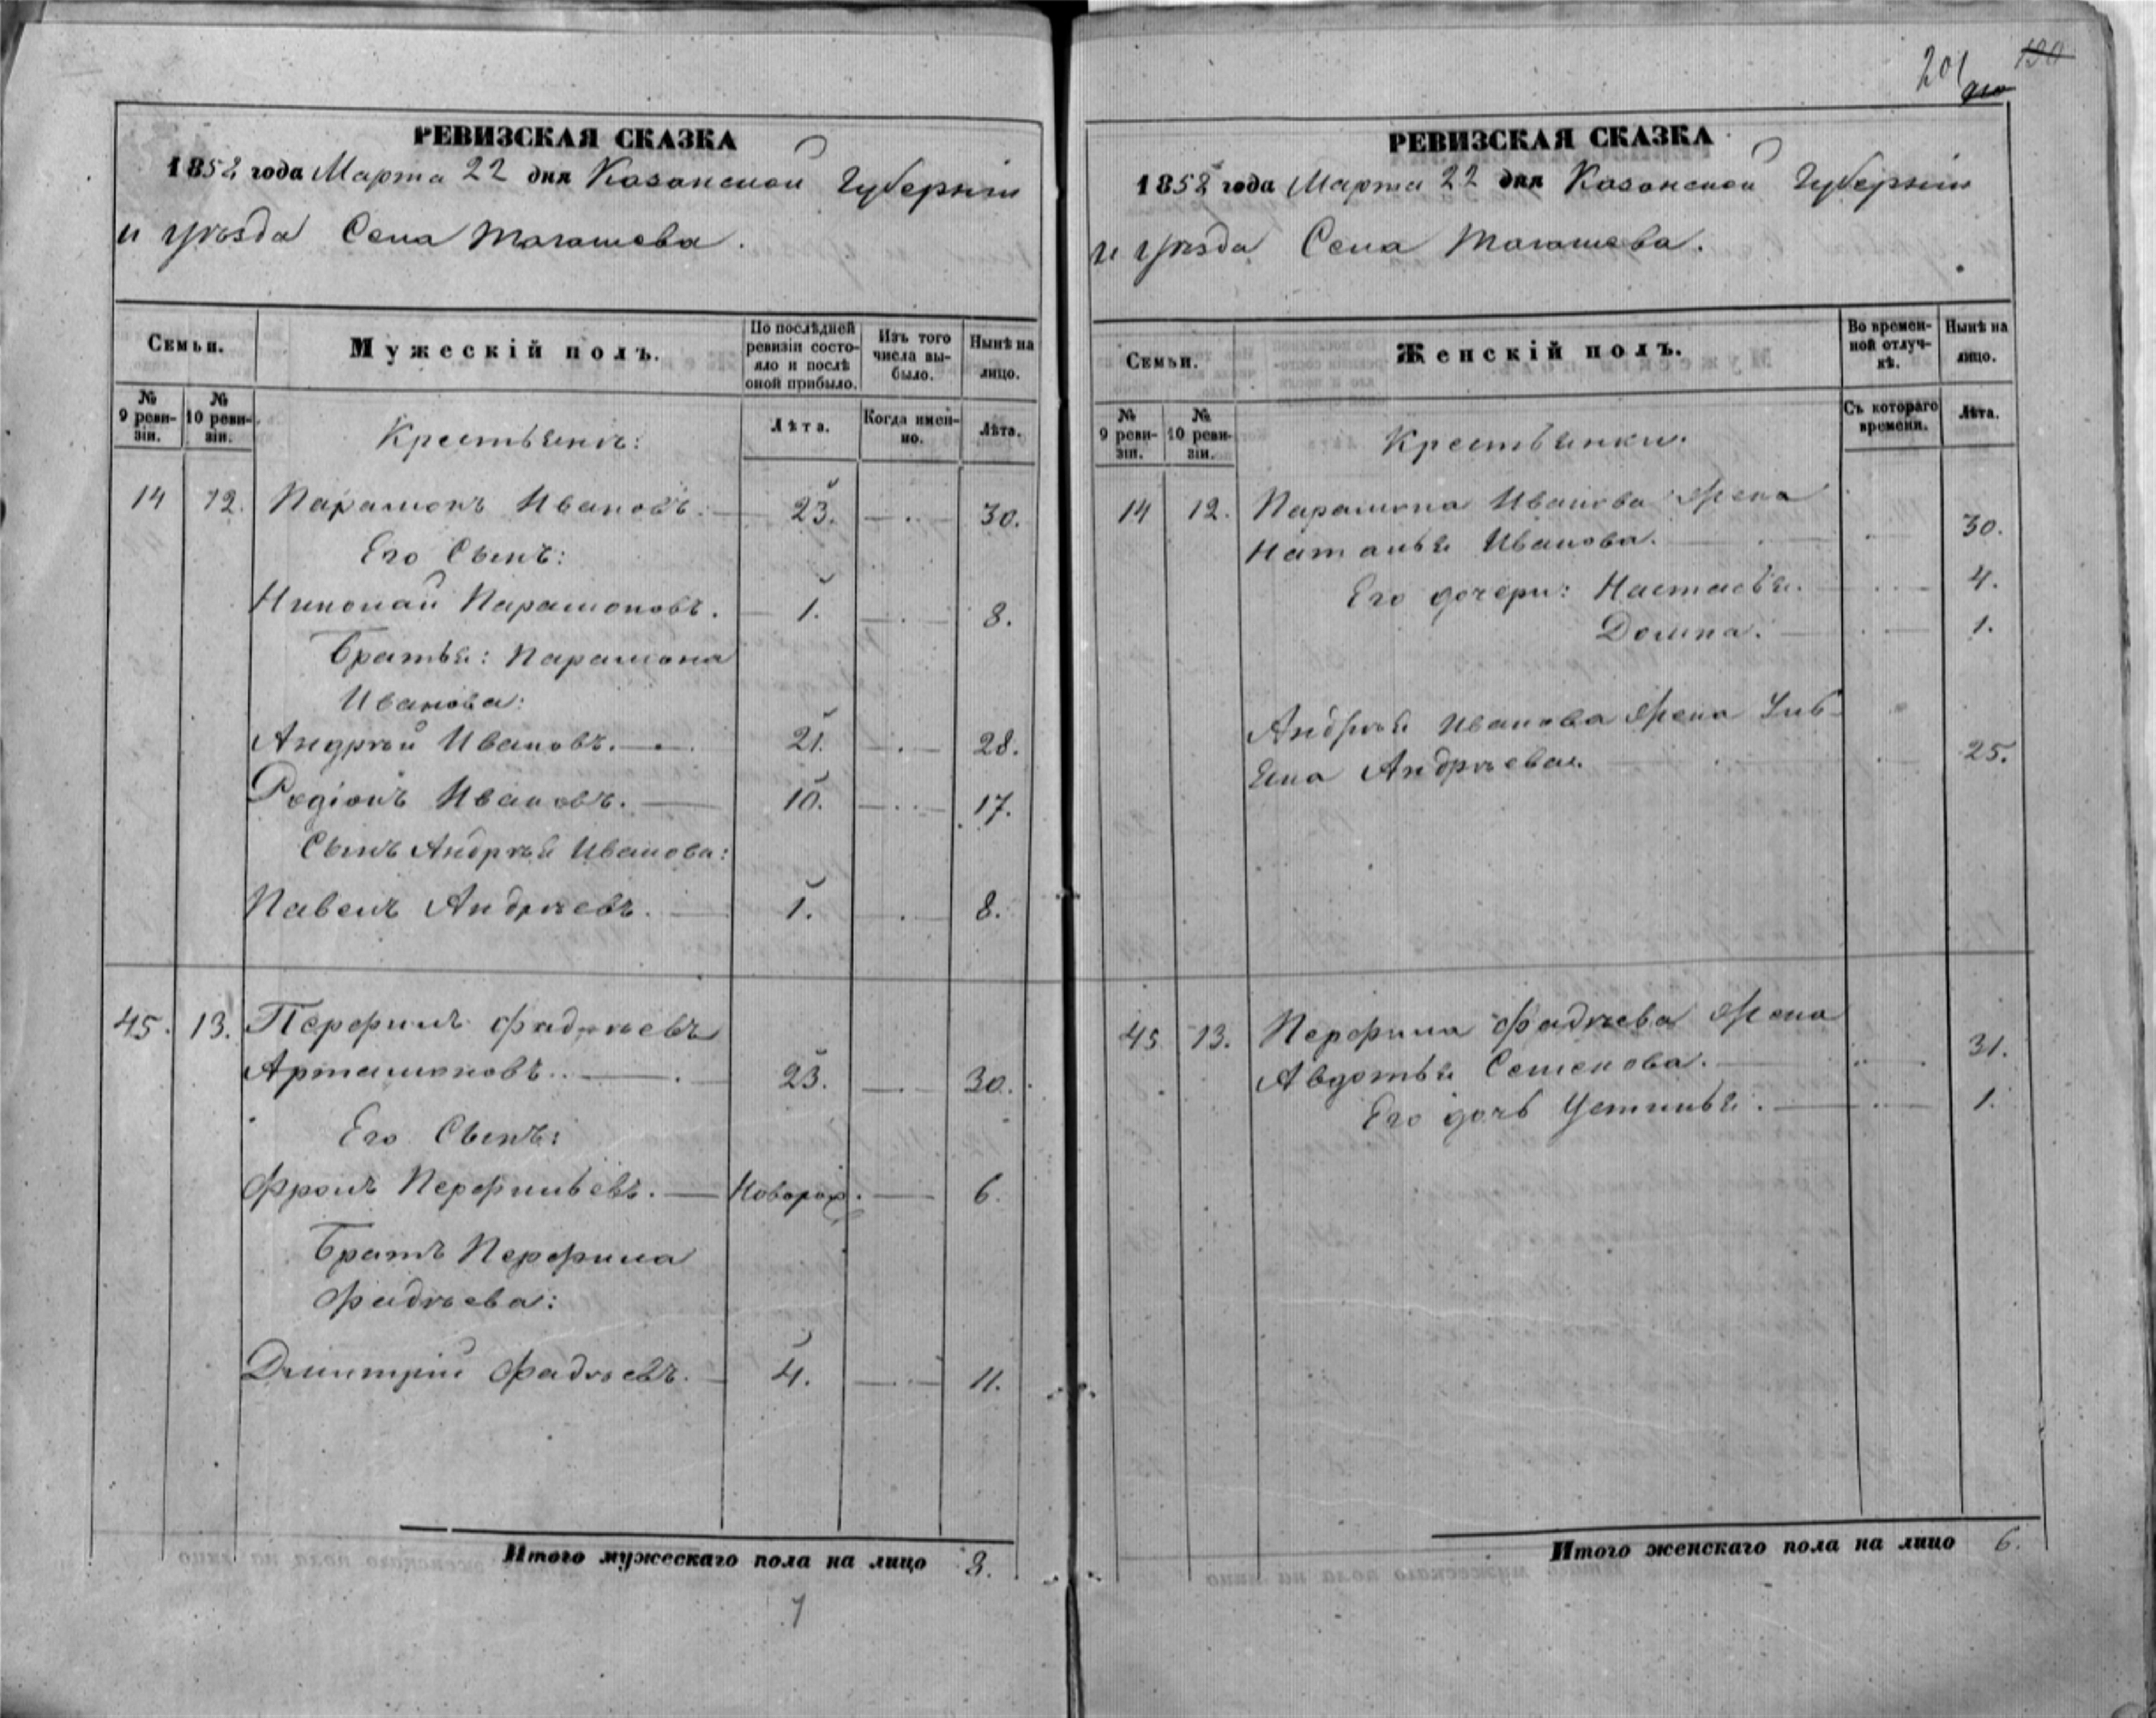 РЕВИЗСКАЯ СКАЗКА
1858 года Марта 22 дня Казанской Губернiи
и уѣзда Села
Семьи.
Мужескiй полъ.
По послѣдней ревизiи состояло и послѣ оной прибыло.
Изъ того числа выбыло.
Нынѣ на лицо.
№ 9 ревизiи.
№ 10 ревизiи.
Крестьянъ:
Лѣта.
Когда именно.
Лѣта.
14 12. Парамонъ Ивановъ. 23. 30.
Его Сынъ:
Николай Парамоновъ. 1. 8.
Братья: Парамона
Иванова:
Андрѣй Ивановъ. 21. 28.
Родiонъ Ивановъ. 10. 17.
Сынъ Андрѣя Иванова:
Павелъ Андрѣевъ. 1. 8.
45. 13. Перфилъ Фадѣевъ
Артамоновъ. 23. 30.
Его Сынъ:
Фролъ Перфильевъ. Новорож. 6.
Братъ Перфила
Фадѣева:
Дмитрiй Фадѣевъ. 4. 11.
Итого мужескаго пола на лицо 8.
7
201
190
РЕВИЗСКАЯ СКАЗКА
1858 года Марта 22 дня Казанской Губернiи
и уѣзда Села
Семьи.
Женскiй полъ.
Во временной отлучкѣ.
Нынѣ на лицо.
№ 9 ревизiи.
№ 10 ревизiи.
Крестьянки.
Съ котораго времени.
Лѣта.
14 12. Парамона Иванова жена
Наталья Иванова. 30.
Его дочери: Настасья. 4.
Домна. 1.
Андрѣя Иванова жена Ули-
Андрѣева. 25.
45 13. Перфила Фадѣева жена
Авдотья Семенова. 31.
Его дочь Устинья. 1.
Итого женскаго пола на лицо 6.